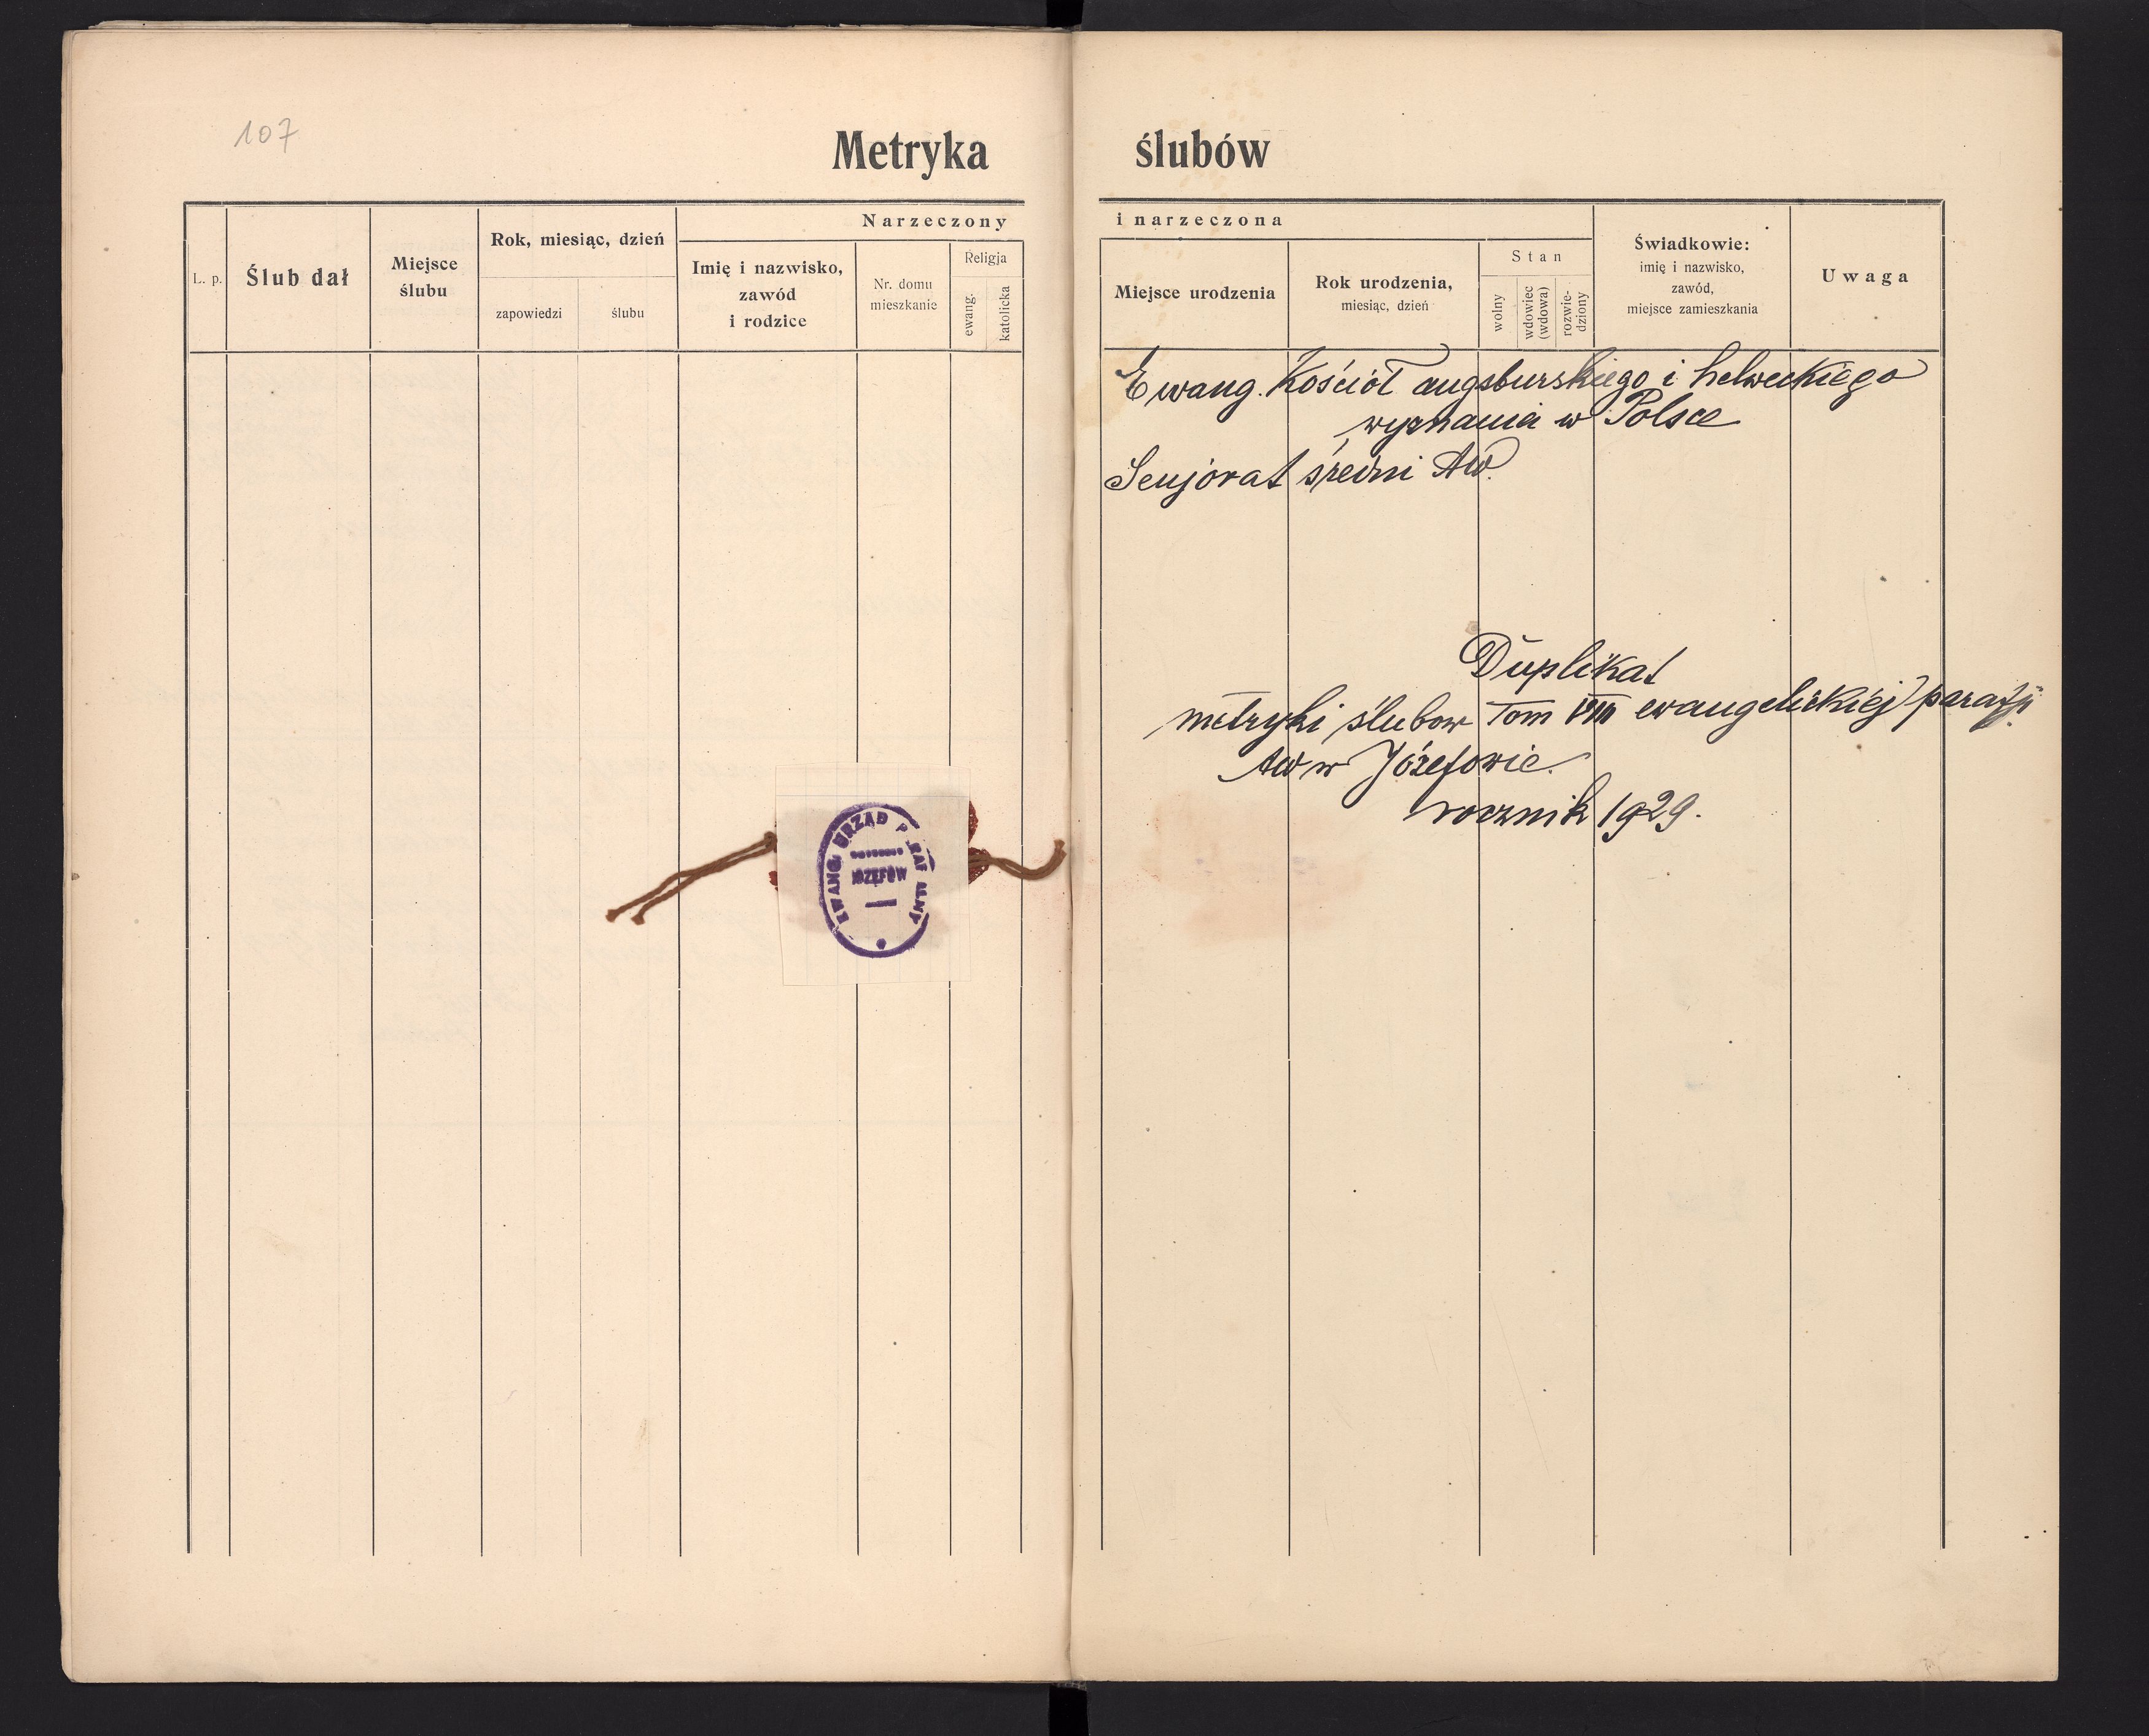 107
Metryka ślubów
L. p.
Ślub dał
Miejsce
ślubu
Rok, miesiąc, dzień
zapowiedzi
ślubu
Narzeczony
Imię i nazwisko,
zawód
i rodzice
Nr. domu
mieszkanie
Religja
ewang.
katolicka
i narzeczona
Miejsce urodzenia
Rok urodzenia,
miesiąc, dzień
Stan
wolny
wdowiec
(wdowa)
rozwie-
dziony
Świadkowie:
imię i nazwisko,
zawód,
miejsce zamieszkania
Uwaga
Ewang. Kościół augsburskiego i helweckiego
wyznania w Polsce
Senjorat średni AW.
Duplikat
metryki ślubow Tom VIII ewangelickiej parafji
AW w Józefowie.
rocznik 1929.
EWANG. URZĄD PARAFIALNY
JÓZEFÓW